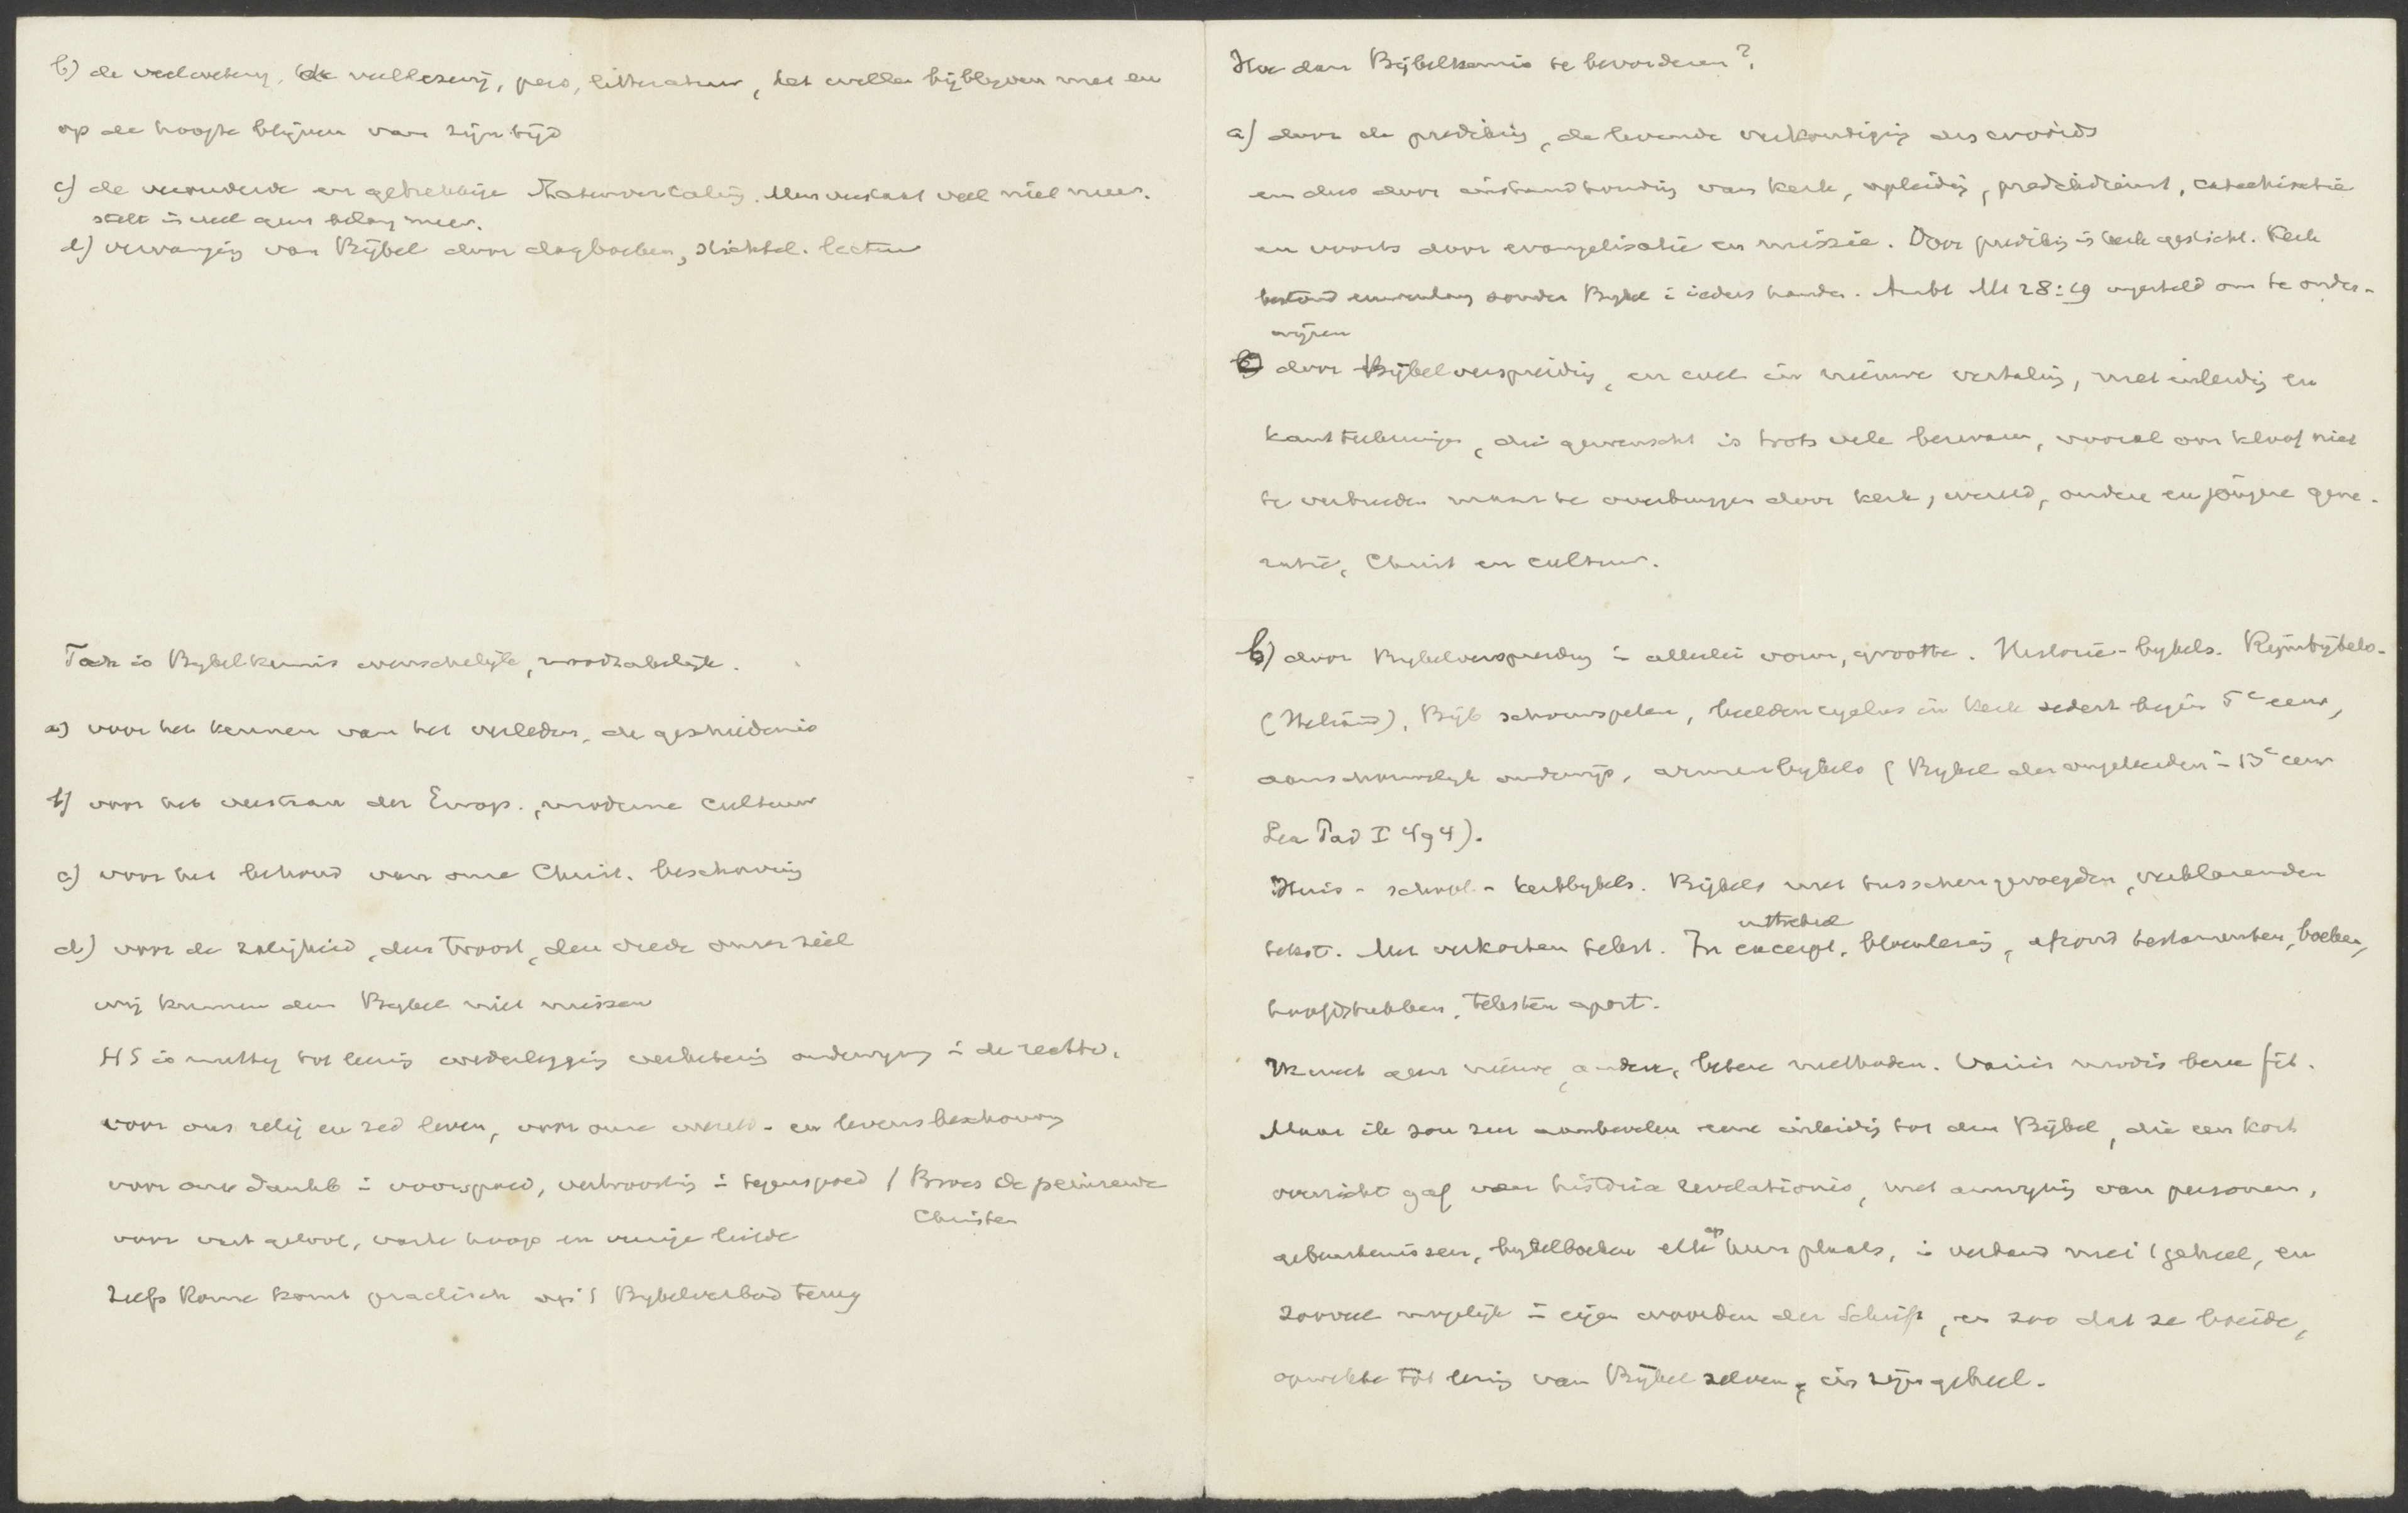 b) de veelweterij, de veellezerij, pers, litteratuur, het willen bijblijven met en
op de hoogte blijven van zijn tijd
c) de verouderde en gebrekkige Statenvertaling. Men verstaat veel niet meer.
stelt in veel geen belang meer.
d) vervanging van Bijbel door dagboeken, stichtel. lectuur
Toch is Bijbelkennis wenschelijk, noodzakelijk.
a) voor het kennen van het verleden, de geschiedenis
b) voor het verstaan der Europ., moderne cultuur
c) voor het behoud van onze Christ. beschaving
d) voor de zaligheid, den troost, den vrede onzer ziel
wij kunnen den Bijbel niet missen
HS is nuttig tot leering wederlegging verbetering onderwijzing i de rechtv.
voor ons relig en zed leven, voor onze wereld- en levensbeschouwing
voor onze dankb i voorspoed, vertroosting i tegenspoed / Broes de peinzende
Christen
voor vast geloof, vaste hoop en vurige liefde
Zelfs Rome komt practisch op 't Bijbelverbod terug
Hoe dan Bijbelkennis te bevorderen?
a) door de prediking, de levende verkondiging des woords
en dus door instandhouding van kerk, opleiding, predikdienst, catechisatie
en voorts door evangelisatie en missie. Door prediking is kerk gesticht. Kerk
bestond eeuwenlang zonder Bijbel i ieders handen. Ambt Mt 28:19 ingesteld om te onder-
wijzen
b) door Bijbelverspreiding, en wel in nieuwe vertaling, met inleiding en
kantteekeningen, die gewenscht is trots vele bezwaren, vooral om kloof niet
te verbreeden maar te overbruggen door kerk, wereld, oudere en jongere gene-
ratie, Christ en cultuur.
b) door Bijbelverspreiding i allerlei vorm, grootte. Historie-bijbels. Rijmbijbels.
(Heliand), Bijb schouwspelen, beeldencyclus in kerk sedert begin 5e eeuw,
aanschouwelijk onderwijs, armenbijbels (Bijbel der ongeletterden i 13e eeuw
I 494).
Huis- school- kerkbijbels. Bijbels met tusschengevoegden, verklarenden
tekst. Met verkorten tekst. In excerpt, uittreksel bloemlezing, afzond testamenten, boeken,
hoofdstukken, teksten apart.
Ik weet geen nieuwe, andere, betere methoden. Variis modis bene fit.
Maar ik zou zeer aanbevelen eene inleiding tot den Bijbel, die een kort
overzicht gaf van historia revelationis, met aanwijzing van personen,
gebeurtenissen, bijbelboeken elk op hun plaats, i verband met 't geheel, en
zooveel mogelijk i eigen woorden der Schrift, en zoo dat ze leidde,
opwekte tot lezing van Bijbel zelven, in zijn geheel.